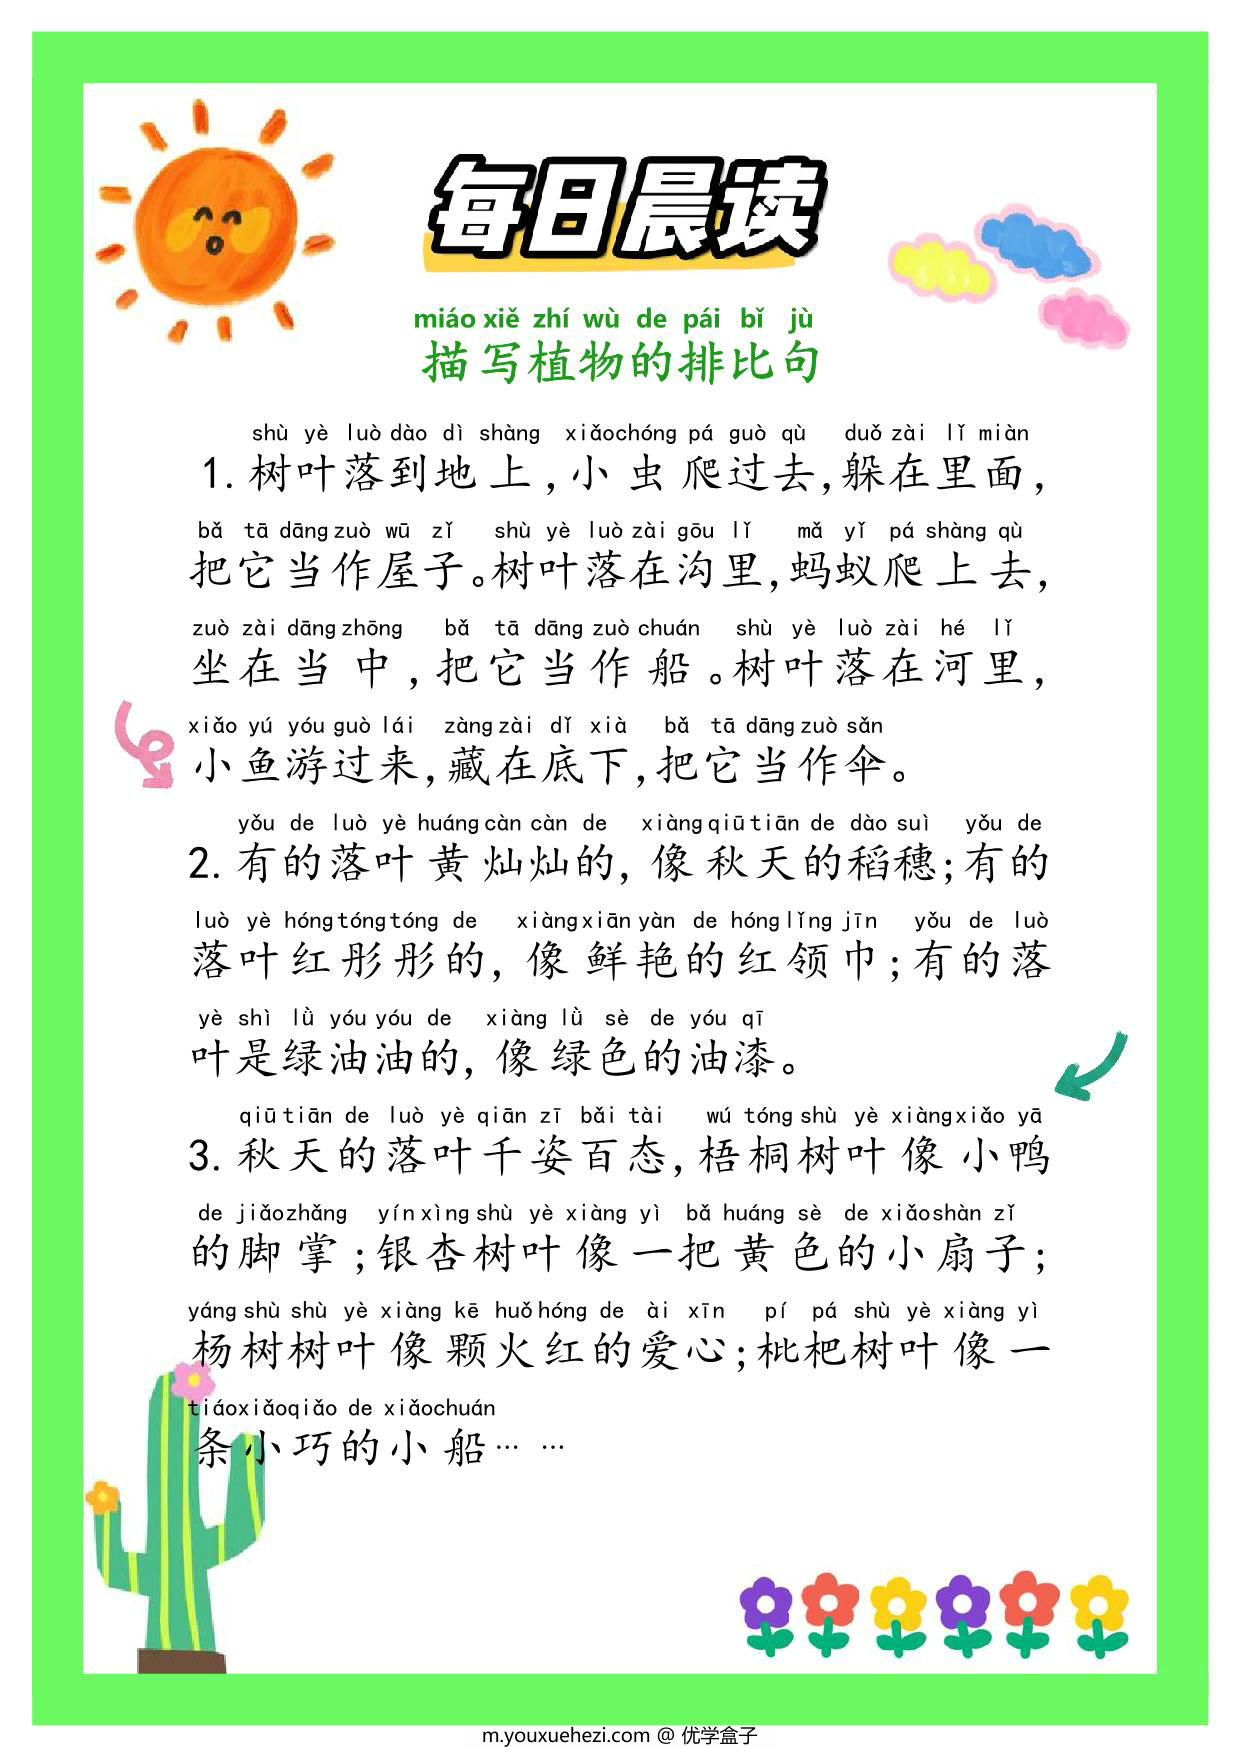 每日晨读
miáo xiě zhí wù de pái bǐ jù
描写植物的排比句
shù yè luò dào dì shàng xiǎochóng pá guò qù duǒ zài lǐ miàn
1.树叶落到地上,小虫爬过去,躲在里面,
bǎ tā dāng zuò wū zǐ shù yè luò zài gōu lǐ mǎ yǐ pá shàng qù
把它当作屋子。树叶落在沟里,蚂蚁爬上去,
zuò zài dāng zhōng bǎ tā dāng zuò chuán shù yè luò zài hé lǐ
坐在当中,把它当作船。树叶落在河里,
xiǎo yú yóu guò lái zàng zài dǐ xià bǎ tā dāng zuò sǎn
小鱼游过来,藏在底下,把它当作伞。
yǒu de luò yè huáng càn càn de xiàng qiū tiān de dào suì yǒu de
2.有的落叶黄灿灿的,像秋天的稻穗;有的
luò yè hóng tóng tóng de xiàng xiān yàn de hóng lǐng jīn yǒu de luò
落叶红彤彤的,像鲜艳的红领巾;有的落
yè shì lǜ yóu yóu de xiàng lǜ sè de yóu qī
叶是绿油油的,像绿色的油漆。
qiū tiān de luò yè qiān zī bǎi tài wú tóng shù yè xiàng xiǎo yā
3.秋天的落叶千姿百态,梧桐树叶像小鸭
de jiǎozhǎng yín xìng shù yè xiàng yì bǎ huáng sè de xiǎo shàn zǐ
的脚掌;银杏树叶像一把黄色的小扇子;
yáng shù shù yè xiàng kē huǒ hóng de ài xīn pí pá shù yè xiàng yì
杨树树叶像颗火红的爱心;枇杷树叶像一
tiáo xiǎo qiǎo de xiǎochuán
条小巧的小船……
m.youxuehezi.com @ 优学盒子